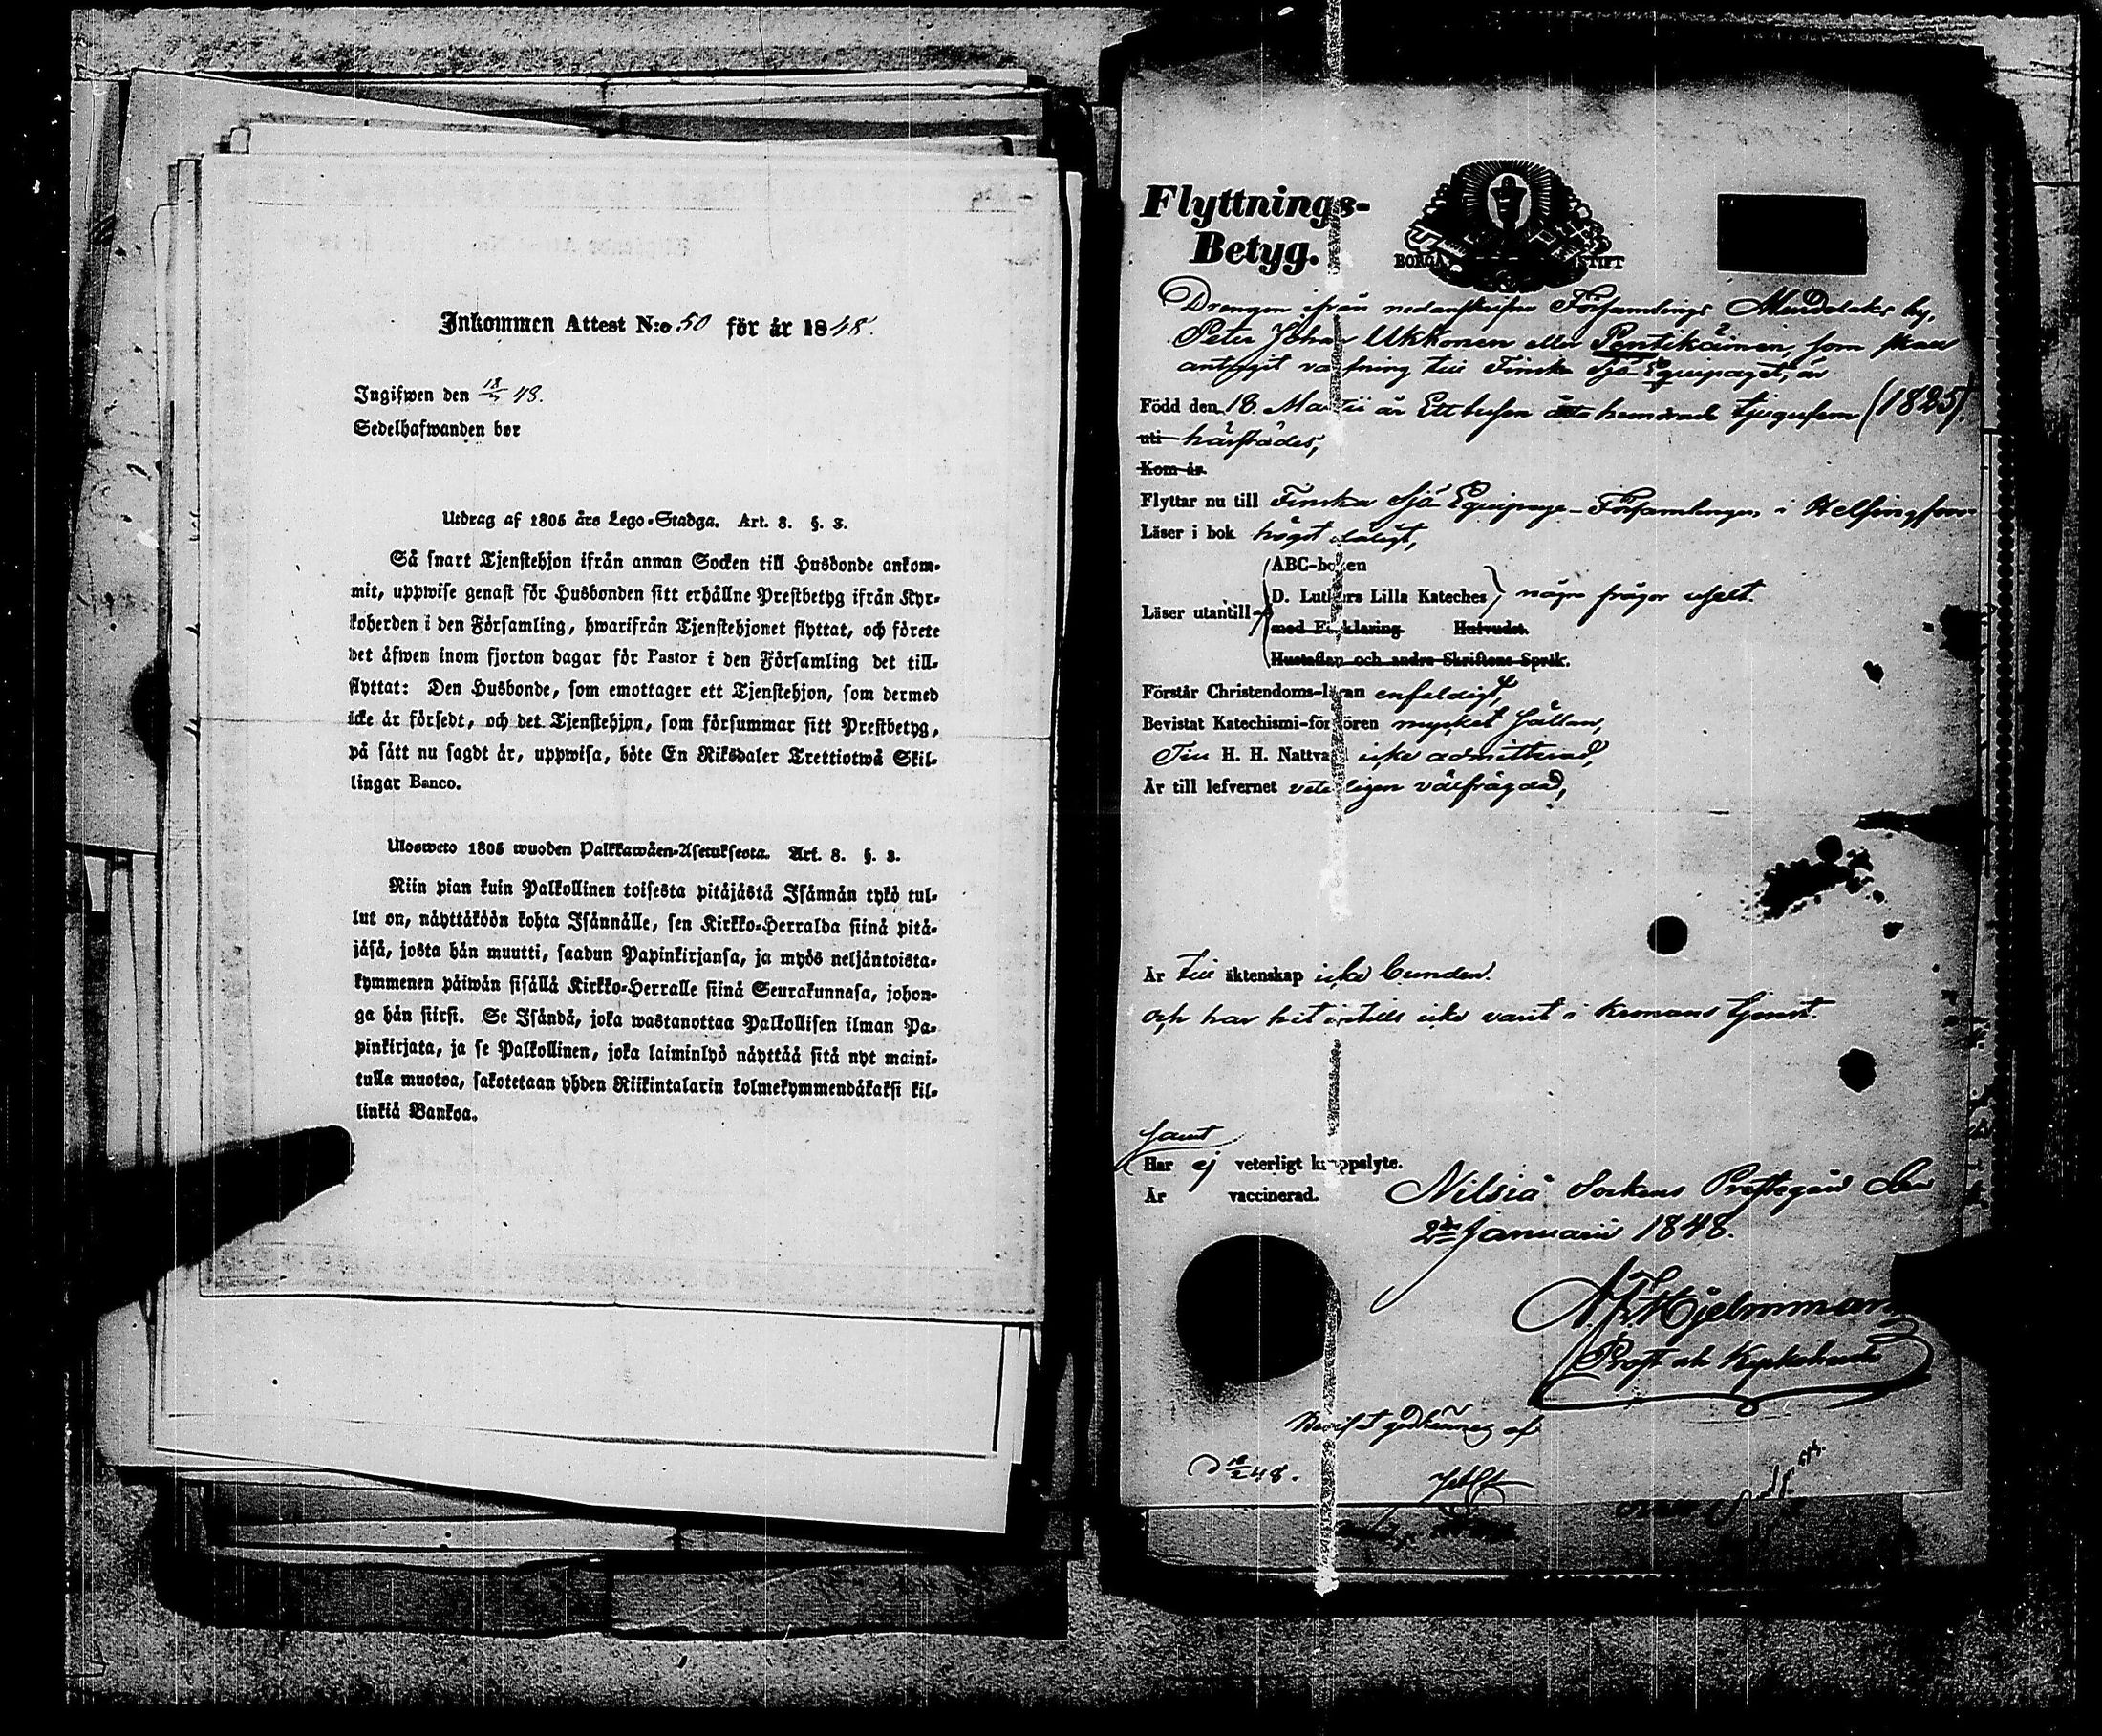 Inkommen Attest N:o 50 för år 1848.
Ingifwen den 18/2 48.
Sedelhafwanden bor
Utdrag af 1805 års Lego-Stadga. Art. 8. §. 3.
Så snart Tjenstehjon ifrån annan Socken till Husbonde ankom-
mit, uppwise genast för Husbonden sitt erhållne Prestbetyg ifrån Kyr-
koherden i den Församling, hwarifrån Tjenstehjonet flyttat, och förete
det åfwen inom fjorton dagar för Pastor i den Församling det till-
flyttat: Den Husbonde, som emottager ett Tjenstehjon, som dermed
icke är försedt, och det Tjenstehjon, som försummar sitt Prestbetyg,
på sätt nu sagdt är, uppwisa, böte En Riksdaler Trettiotwå Skil-
lingar Banco.
Ulosweto 1805 wuoden Palkkawäen-Asetuksesta. Art. 8. §. 3.
Niin pian kuin Palkollinen toisesta pitäjästä Isännän tykö tul-
lut on, näyttäköön kohta Isännälle, sen Kirkko-Herralda siinä pitä-
jäsä, josta hän muutti, saadun Papinkirjansa, ja myös neljäntoista-
kymmenen päiwän sisällä Kirkko-Herralle siinä Seurakunnasa, johon-
ga hän siirsi. Se Isändä, joka wastanottaa Palkollisen ilman Pa-
pinkirjata, ja se Palkollinen, joka laiminlyö näyttää sitä nyt maini-
tulla muotoa, sakotetaan yhden Riikintalarin kolmekymmendäkaksi kil-
linkiä Bankoa.
Flyttnings-
Betyg.
BORGÅ STIFT
Drengen ifrån nedanskrifne Församlings Muurulaks by,
Peter Johan Ukkonen eller Pentikäinen, som skall
antagit värfning till Finska Sjö-Equipaget, är
Född den 18 Martii år Ett tusen åtta hundrade tjugufem (1825)
uti härstädes,
Kom år.
Flyttar nu till Finska Sjö-Equipage-Församlingen i Helsingfors
Läser i bok högst dåligt,
ABC-boken
Läser utantill D. Luthers Lilla Kateches några frågor uselt.
med Förklaring Hufvudst.
Hustaflan och andra Skriftens Språk.
Förstår Christendoms-läran enfaldigt,
Bevistat Katechismi-förhören mycket sällan,
Till H. H. Nattvard icke admitterad,
Är till lefvernet veterligen välfrägdad,
Är till äktenskap icke bunden.
och har hit intills icke varit i Kronans tjenst.
samt
Har ej veterligt kroppslyte.
Är vaccinerad.
Nilsiä Sockens Prestegård den
2dra Januarii 1848.
Hjelmman
Prost och Kyrkoherde
Beviset godkännes af
d 18/2 48.